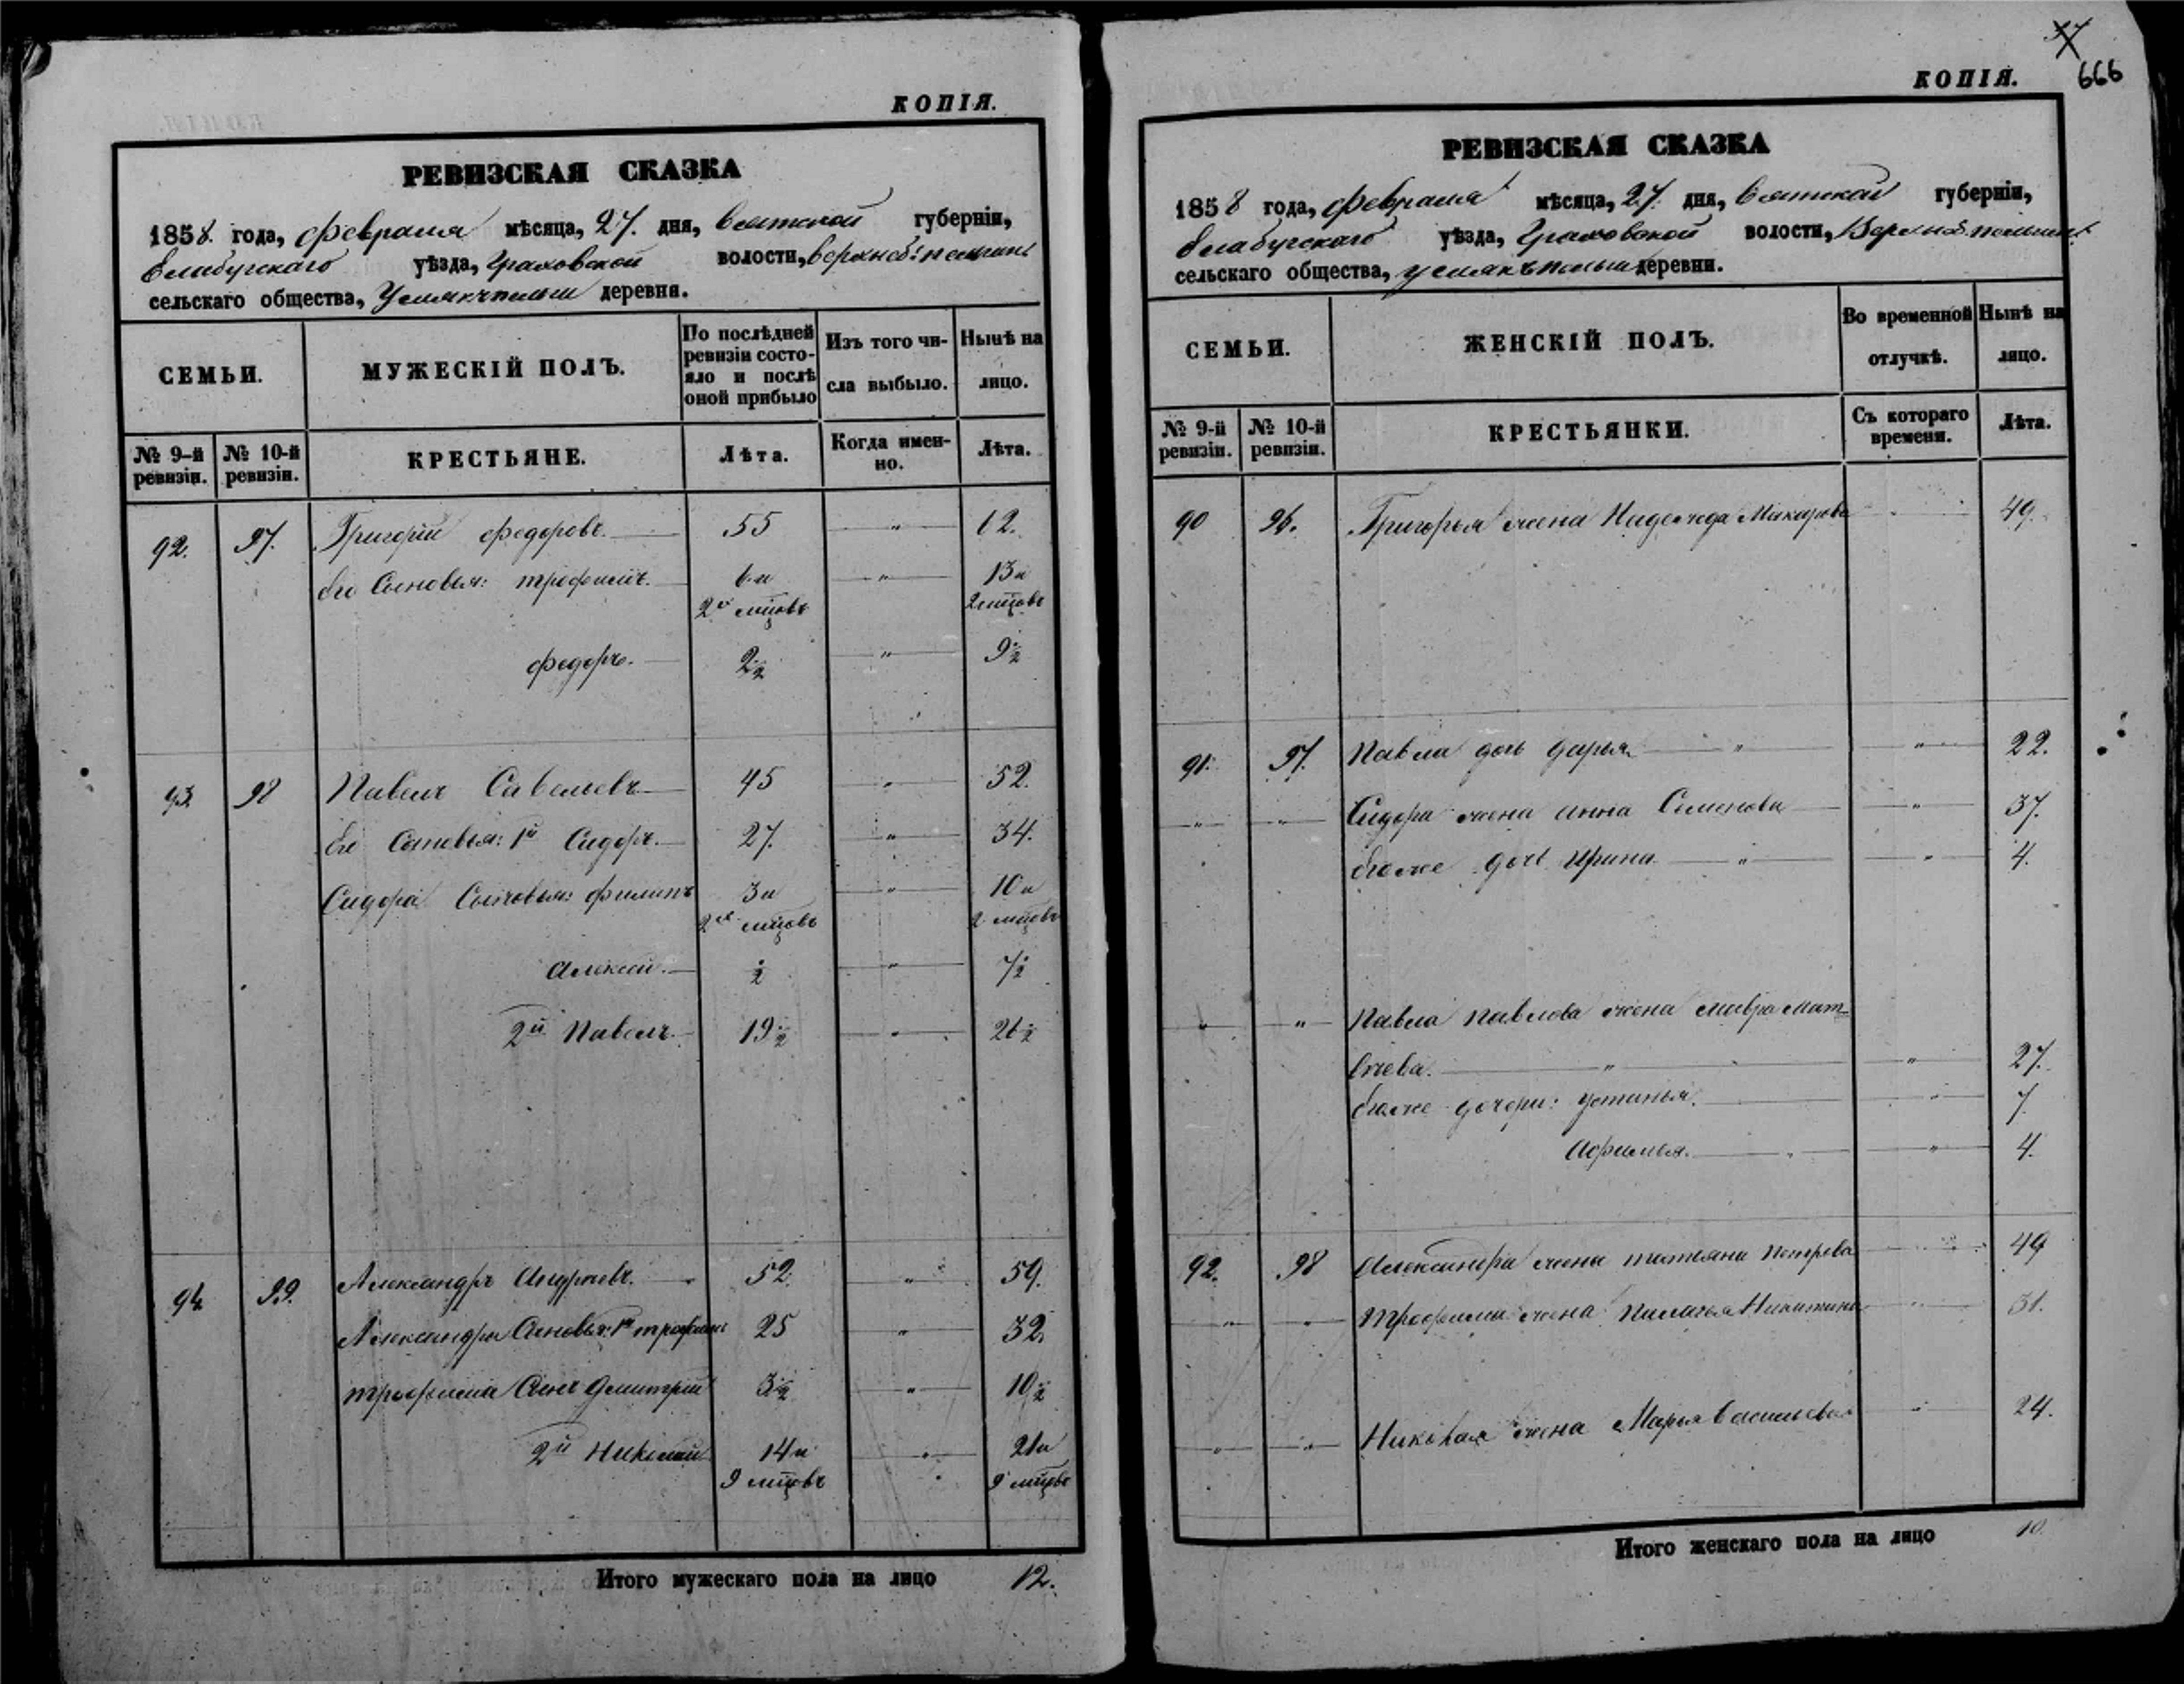 КОПІЯ.
РЕВИЗСКАЯ СКАЗКА
1858. года, февраля мѣсяца, 27. дня, Вятской губерніи,
Елабугскаго уѣзда, Граховской волости,
сельскаго общества, деревня.
СЕМЬИ. МУЖЕСКІЙ ПОЛЪ. По послѣдней ревизіи состояло и послѣ оной прибыло Изъ того числа выбыло. Нынѣ на лицо.
№ 9-й ревизіи. № 10-й ревизіи. КРЕСТЬЯНЕ. Лѣта. Когда именно. Лѣта.
92. 97. Григорій Федоровъ. 55 " 62.
Его Сыновья: Трофимъ. 6 и " 13 и
2 мцовъ 2 мцовъ
Федоръ. 2 1/2 " 9 1/2
93. 98 Павелъ Савельевъ 45 " 52.
Его Сыновья: 1й Сидоръ. 27. " 34.
Сидора Сыновья: Филипъ 3 и " 10 и
2 мцовъ 2 мцовъ
Алексей. 1/2 " 7 1/2
2й Павелъ. 19 1/2 " 26 1/2
94 99. Александръ Андреевъ. 52 " 59.
Александра Сыновья: 1й Трофимъ 25 " 32.
Трофима Сынъ Дмитрій 3 1/2 " 10 1/2
2й Николай 14 и " 21 и
9 мцовъ 9 мцовъ
Итого мужескаго пола на лицо 12.
666
КОПІЯ.
РЕВИЗСКАЯ СКАЗКА
1858 года, февраля мѣсяца, 27. дня, Вятской губерніи,
Елабугскаго уѣзда, Граховской волости,
сельскаго общества, деревни.
СЕМЬИ. ЖЕНСКІЙ ПОЛЪ. Во временной отлучкѣ. Нынѣ на лицо.
№ 9-й ревизіи. № 10-й ревизіи. КРЕСТЬЯНКИ. Съ котораго времени. Лѣта.
90 96. Григорья жена Надежда Макарова " 49.
91. 97. Павла дочь Дарья " " 22.
" " Сидора жена Анна Семенова " 37.
Егоже дочь Ирина " " 4.
" " Павла Павлова жена Мавра Мат-
веева. " " 27.
Егоже дочери: Устинья. " 7
Афимья. " " 4.
92. 98 Александра жена Татьяна Петрова " 49
" " Трофима жена Палагья Никитина " 31.
" " Николая жена Марья Васильева " 24.
Итого женскаго пола на лицо 10.